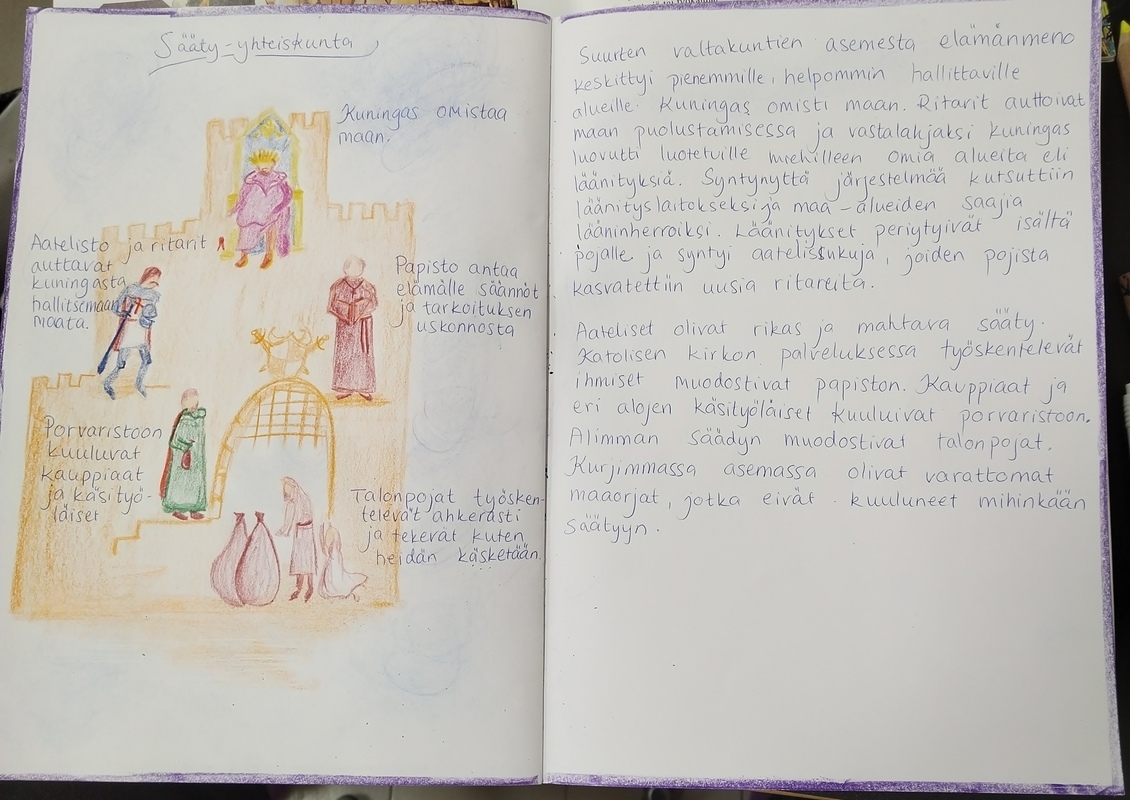 Sääty-yhteiskunta
Kuningas omistaa
maan.
Aatelisto ja ritarit
auttavat
kuningasta
hallitsemaan
maata.
Papisto antaa
elämälle säännöt
ja tarkoituksen
uskonnosta
Porvaristoon
kuuluvat
kauppiaat
ja käsityö-
läiset
Talonpojat työsken-
televät ahkerasti
ja tekevät kuten
heidän käsketään.
Suurten valtakuntien asemesta elämänmeno
keskittyi pienemmille, helpommin hallittaville
alueille. Kuningas omisti maan. Ritarit auttoivat
maan puolustamisessa ja vastalahjaksi kuningas
luovutti luotetuille miehilleen omia alueita eli
läänityksiä. Syntynyttä järjestelmää kutsuttiin
läänityslaitokseksi ja maa-alueiden saajia
lääninherroiksi. Läänitykset periytyivät isältä
pojalle ja syntyi aatelissukuja, joiden pojista
kasvatettiin uusia ritareita.
Aateliset olivat rikas ja mahtava sääty.
Katolisen kirkon palveluksessa työskentelevät
ihmiset muodostivat papiston. Kauppiaat ja
eri alojen käsityöläiset kuuluivat porvaristoon.
Alimman säädyn muodostivat talonpojat.
Kurjimmassa asemassa olivat varattomat
maaorjat, jotka eivät kuuluneet mihinkään
säätyyn.